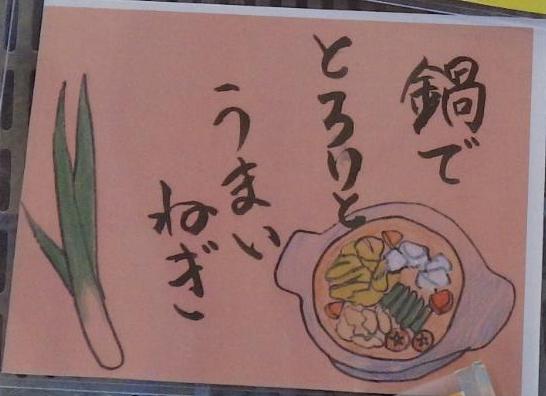 鍋で
とろりと
うまい
ねぎ